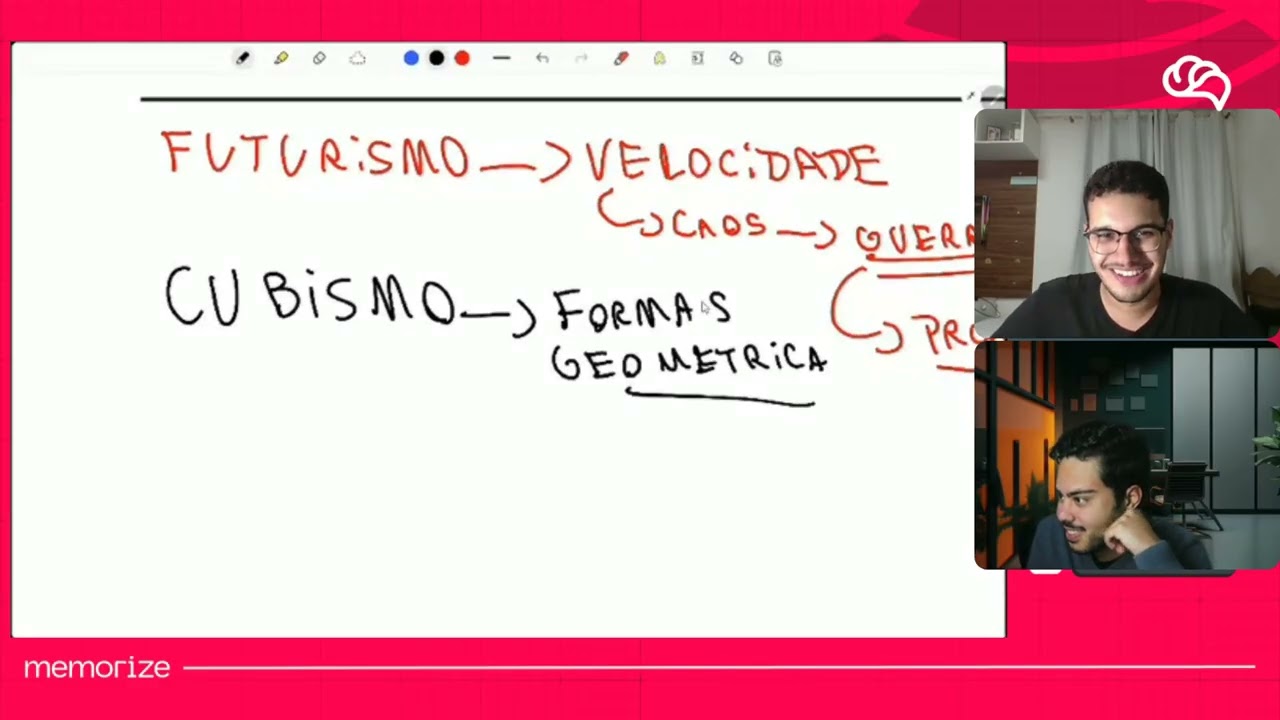 FUTURiSMO —> VELOCiDADE
CAOS —> GUERRA
CUBiSMO —> FORMAS
GEOMETRiCA
memorize